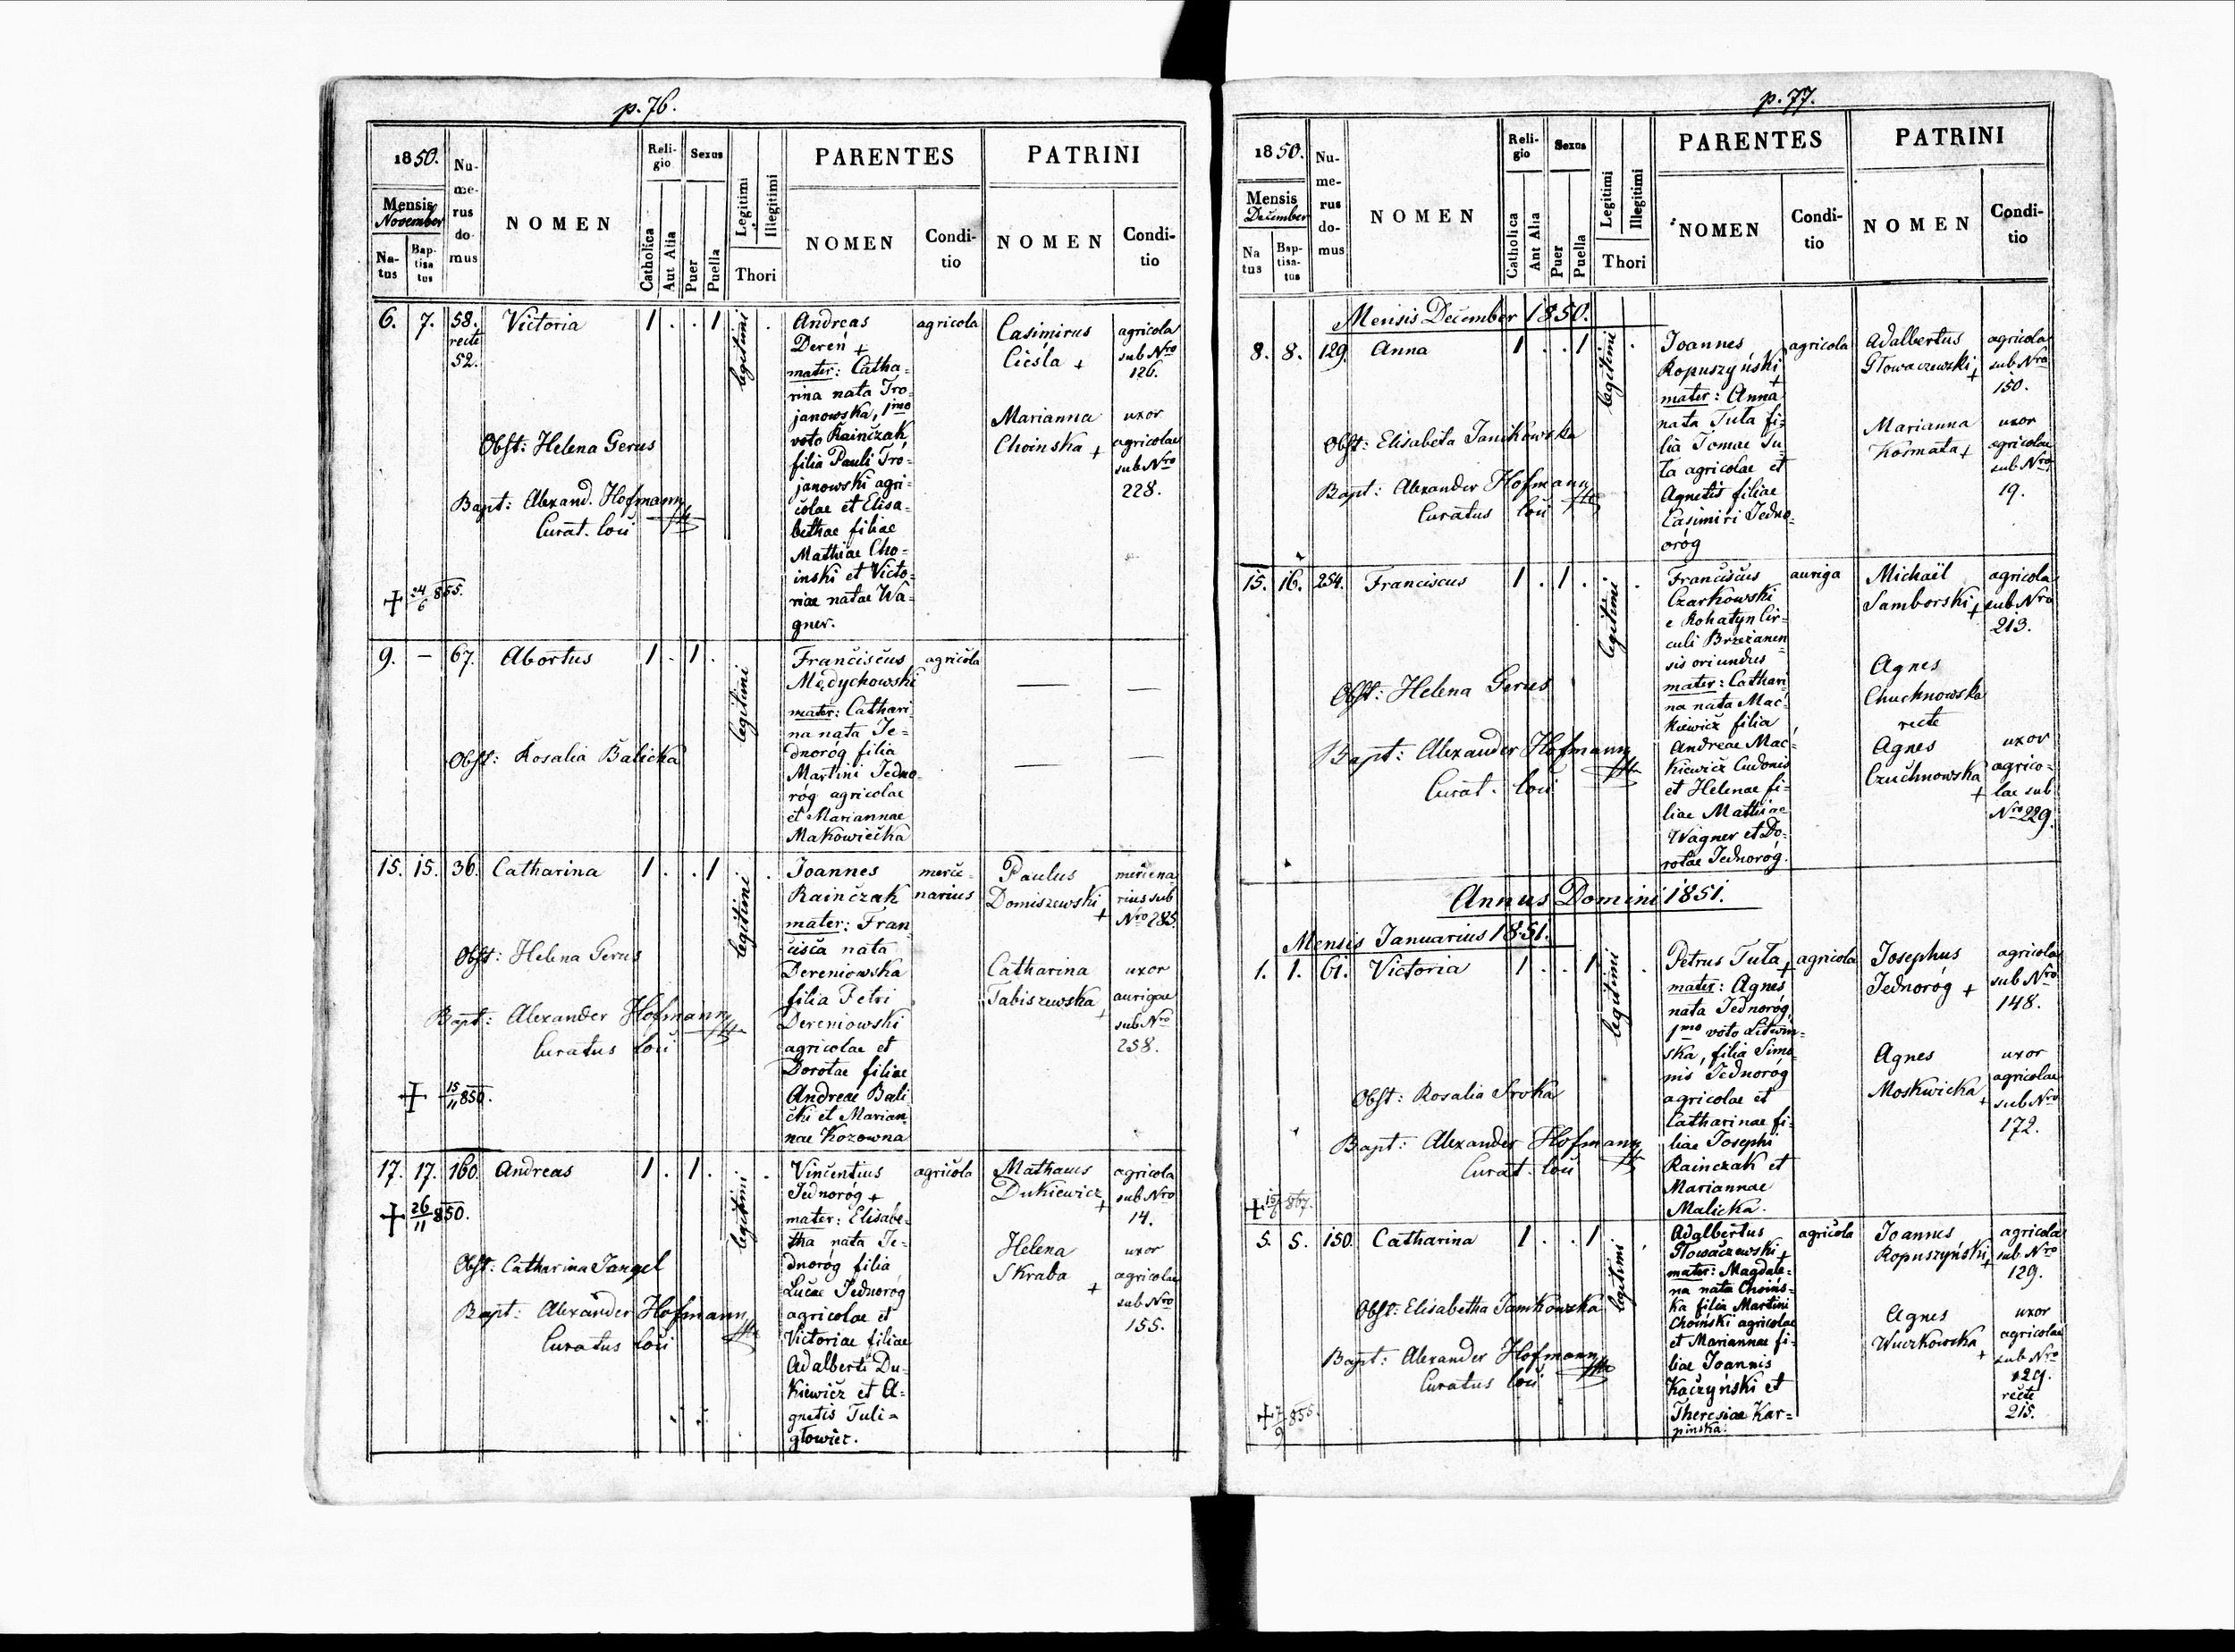 p. 76.
1850.
Mensis
November
Na-
tus
Bap-
tisa
tus
Nu-
me-
rus
do-
mus
NOMEN
Reli-
gio
Catholica
Aut Alia
Sexus
Puer
Puella
Legitimi
Illegitimi
Thori
PARENTES
NOMEN
Condi-
tio
PATRINI
NOMEN
Condi-
tio
6. 7. 58.
recte
52.
Victoria
1 . . 1
legitimi
.
Obst: Helena Gerus
Bapt: Alexand. Hofmann
Curat. loci
+ 24/6 855.
Andreas
Dereń +
mater: Catha-
rina nata Tro-
janowska, 1mo
voto Rainczak,
filia Pauli Tro-
janowski agri-
colae et Elisa-
bethae filiae
Mathiae Cho-
inski et Victo-
riae natae Wa-
gner.
agricola
Casimirus
Cieśla +
agricola
sub Nro
126.
Marianna
Choinska +
uxor
agricolae
sub Nro
228.
9. — 67. Abortus
1 . 1 .
legitimi
Obst: Rosalia Balicka
Franciscus
Mędychowski
mater: Cathari-
na nata Je-
dnoróg filia
Martini Jedno-
róg agricolae
et Mariannae
Makowiecka
agricola
— —
— —
15. 15. 36. Catharina
1 . . 1
legitimi
.
Obst: Helena Gerus
Bapt: Alexander Hofmann
Curatus loci
+ 15/11 850.
Joannes
Rainczak
mater: Fran-
cisca nata
Dereniowska
filia Petri
Dereniowski
agricolae et
Dorotae filiae
Andreae Bali-
cki et Marian-
nae Kozowna
merce-
narius
Paulus
Domiszewski
+
mercena
rius sub
Nro 285
Catharina
Tabiszewska +
uxor
aurigae
sub Nro
258.
17. 17. 160. Andreas
1 . 1 .
legitimi
.
+ 26/11 850.
Obst: Catharina Jangel
Bapt: Alexander Hofmann
Curatus loci
Vincentius
Jednoróg +
mater: Elisabe-
tha nata Je-
dnoróg filia
Lucae Jednoróg
agricolae et
Victoriae filiae
Adalberti Du-
kiewicz et A-
gnetis Tuli-
głowiec.
agricola
Mathaeus
Dukiewicz +
agricola
sub Nro
14.
Helena
Skraba +
uxor
agricolae
sub Nro
155.
p. 77.
1850.
Mensis
December
Na
tus
Bap-
tisa-
tus
Nu-
me-
rus
do-
mus
NOMEN
Reli-
gio
Catholica
Aut Alia
Sexus
Puer
Puella
Legitimi
Illegitimi
Thori
PARENTES
NOMEN
Condi-
tio
PATRINI
NOMEN
Condi-
tio
Mensis December 1850.
8. 8. 129. Anna
1 . . 1
legitimi
.
Obst: Elisabeta Janikowska
Bapt: Alexander Hofmann
Curatus loci
Joannes
Ropuszyński
+
mater: Anna
nata Tuta fi-
lia Tomae Tu-
ta agricolae et
Agnetis filiae
Casimiri Jedno-
oróg
agricola
Adalbertus
Głowaczewski +
agricola
sub Nro
150.
Marianna
Kormata +
uxor
agricolae
sub Nro
19.
15. 16. 254. Franciscus
1 . 1 .
legitimi
.
Obst: Helena Gerus
Bapt: Alexander Hofmann
Curat. loci
Franciscus
Czarkowski
e Rohatyn Cir-
culi Brzeżanen-
sis oriundus
mater: Cathari-
na nata Mac-
kiewicz filia
Andreae Mac-
kiewicz Cudonis
et Helenae fi-
liae Mathiae
Wagner et Do-
rotae Jednoróg.
auriga
Michaël
Samborski +
agricola
sub Nro
213.
Agnes
Chuchnowska
recte
Agnes
Czuchnowska
+
uxor
agrico-
lae sub
Nro 229.
Annus Domini 1851.
Mensis Januarius 1851.
1. 1. 61. Victoria
1 . . 1
legitimi
.
Obst: Rosalia Sroka
Bapt: Alexander Hofmann
Curat. loci
+ 15/6 867.
Petrus Tuta +
mater: Agnes
nata Jednoróg
1mo voto Litwin-
ska, filia Simo-
nis Jednoróg
agricolae et
Catharinae fi-
liae Josephi
Rainczak et
Mariannae
Malicka.
agricola
Josephus
Jednoróg +
agricola
sub Nro
148.
Agnes
Moskwicka +
uxor
agricolae
sub Nro
172.
5. 5. 150. Catharina
1 . . 1
legitimi
.
Obst: Elisabetha Jamkowska
Bapt: Alexander Hofmann
Curatus loci
+ 7/9 855.
Adalbertus
Głowaczewski +
mater: Magdale-
na nata Choins-
ka filia Martini
Choiński agricolae
et Mariannae fi-
liae Joannis
Kaczyński et
Theresiae Kar-
pinska.
agricola
Joannes
Ropuszyński +
agricola
sub Nro
129.
Agnes
Wuczkowska +
uxor
agricolae
sub Nro
129.
recte
215.